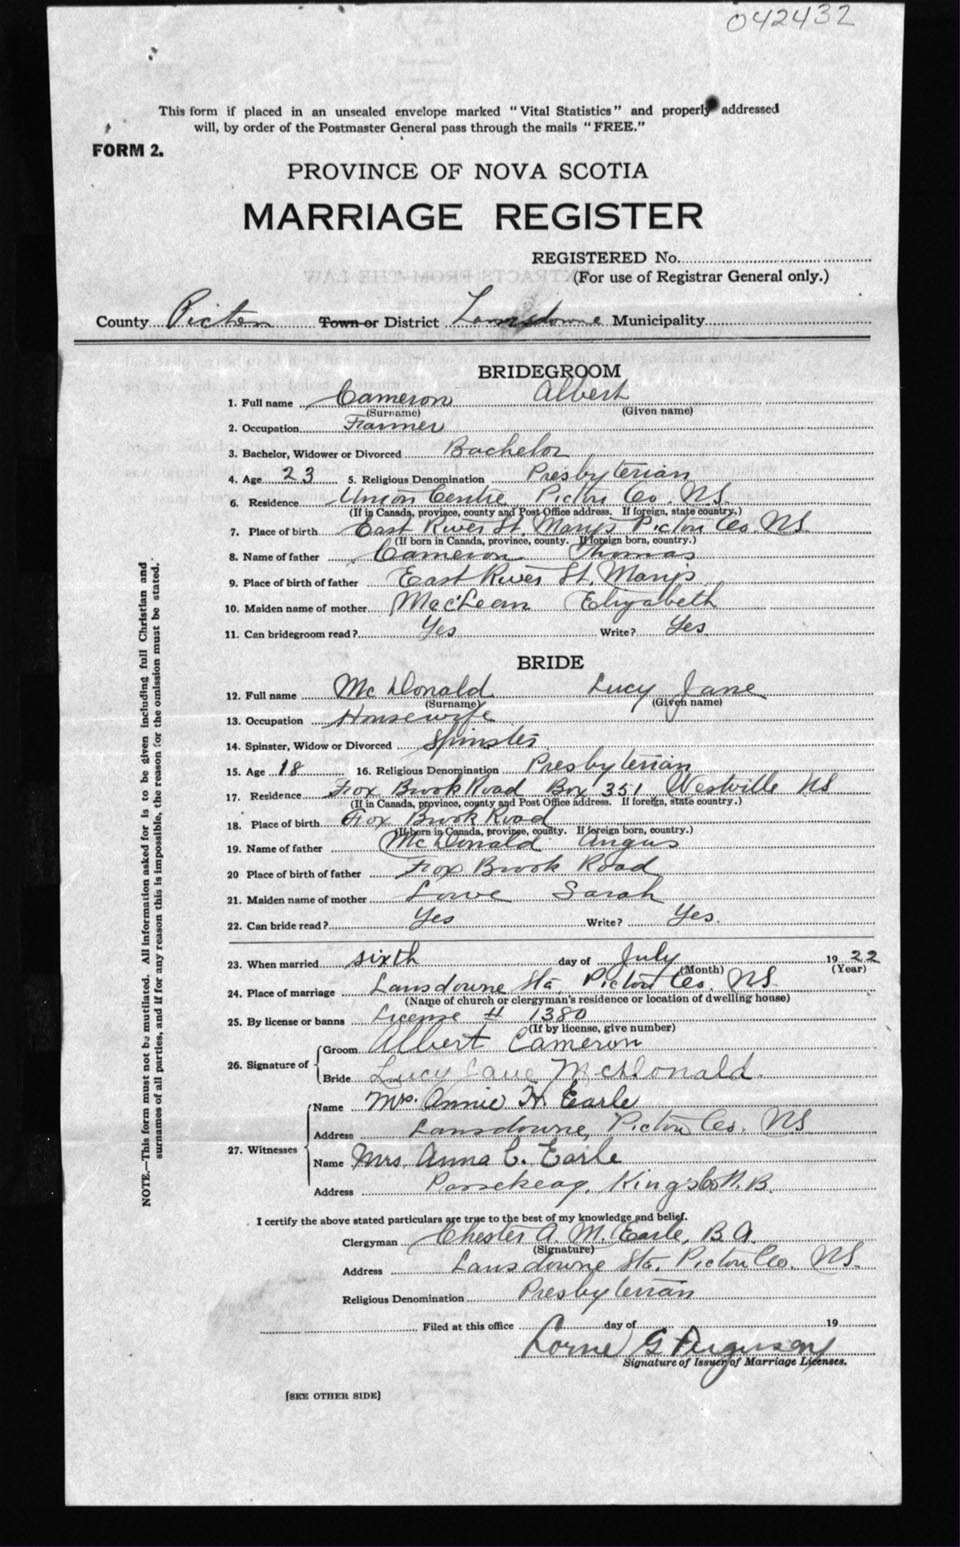 042432
This form if placed in an unsealed envelope marked "Vital Statistics" and properly addressed
will, by order of the Postmaster General pass through the mails "FREE."
FORM 2.
PROVINCE OF NOVA SCOTIA
MARRIAGE REGISTER
REGISTERED No.
(For use of Registrar General only.)
County Pictou Town or District Lansdowne Municipality
BRIDEGROOM
1. Full name Cameron Albert
(Surname) (Given name)
2. Occupation Farmer
3. Bachelor, Widower or Divorced Bachelor
4. Age 23 5. Religious Denomination Presbyterian
6. Residence Union Centre Pictou Co. N.S.
(If in Canada, province, county and Post Office address. If foreign, state country.)
7. Place of birth East River St. Mary's Pictou Co. NS
(If born in Canada, province, county. If foreign born, country.)
8. Name of father Cameron Thomas
9. Place of birth of father East River St. Mary's
10. Maiden name of mother MacLean Elizabeth
11. Can bridegroom read? Yes Write? Yes.
BRIDE
12. Full name McDonald Lucy Jane
(Surname) (Given name)
13. Occupation Housewife
14. Spinster, Widow or Divorced Spinster
15. Age 18 16. Religious Denomination Presbyterian
17. Residence Fox Brook Road Box 351 Westville NS
(If in Canada, province, county and Post Office address. If foreign, state country.)
18. Place of birth Fox Brook Road
(If born in Canada, province, county. If foreign born, country.)
19. Name of father McDonald Angus
20 Place of birth of father Fox Brook Road
21. Maiden name of mother Lowe Sarah
22. Can bride read? Yes Write? Yes.
23. When married sixth day of July 1922
(Month) (Year)
24. Place of marriage Lansdowne Sta. Pictou Co. NS
(Name of church or clergyman's residence or location of dwelling house)
25. By license or banns License # 1380
(If by license, give number)
26. Signature of Groom Albert Cameron
Bride Lucy Jane McDonald.
27. Witnesses Name Mrs. Annie H. Earle
Address Lansdowne, Pictou Co. NS
Name Mrs. Anna C. Earle
Address Passekeag, Kings Co. N.B.
I certify the above stated particulars are true to the best of my knowledge and belief.
Clergyman Chester A. M. Earle, B.A.
(Signature)
Address Lansdowne Sta. Pictou Co. NS.
Religious Denomination Presbyterian
Filed at this office day of 19
Lorne G Ferguson
Signature of Issuer of Marriage Licenses.
[SEE OTHER SIDE]
NOTE.—This form must not be mutilated. All information asked for is to be given including full Christian and
surnames of all parties, and if for any reason this is impossible, the reason for the omission must be stated.